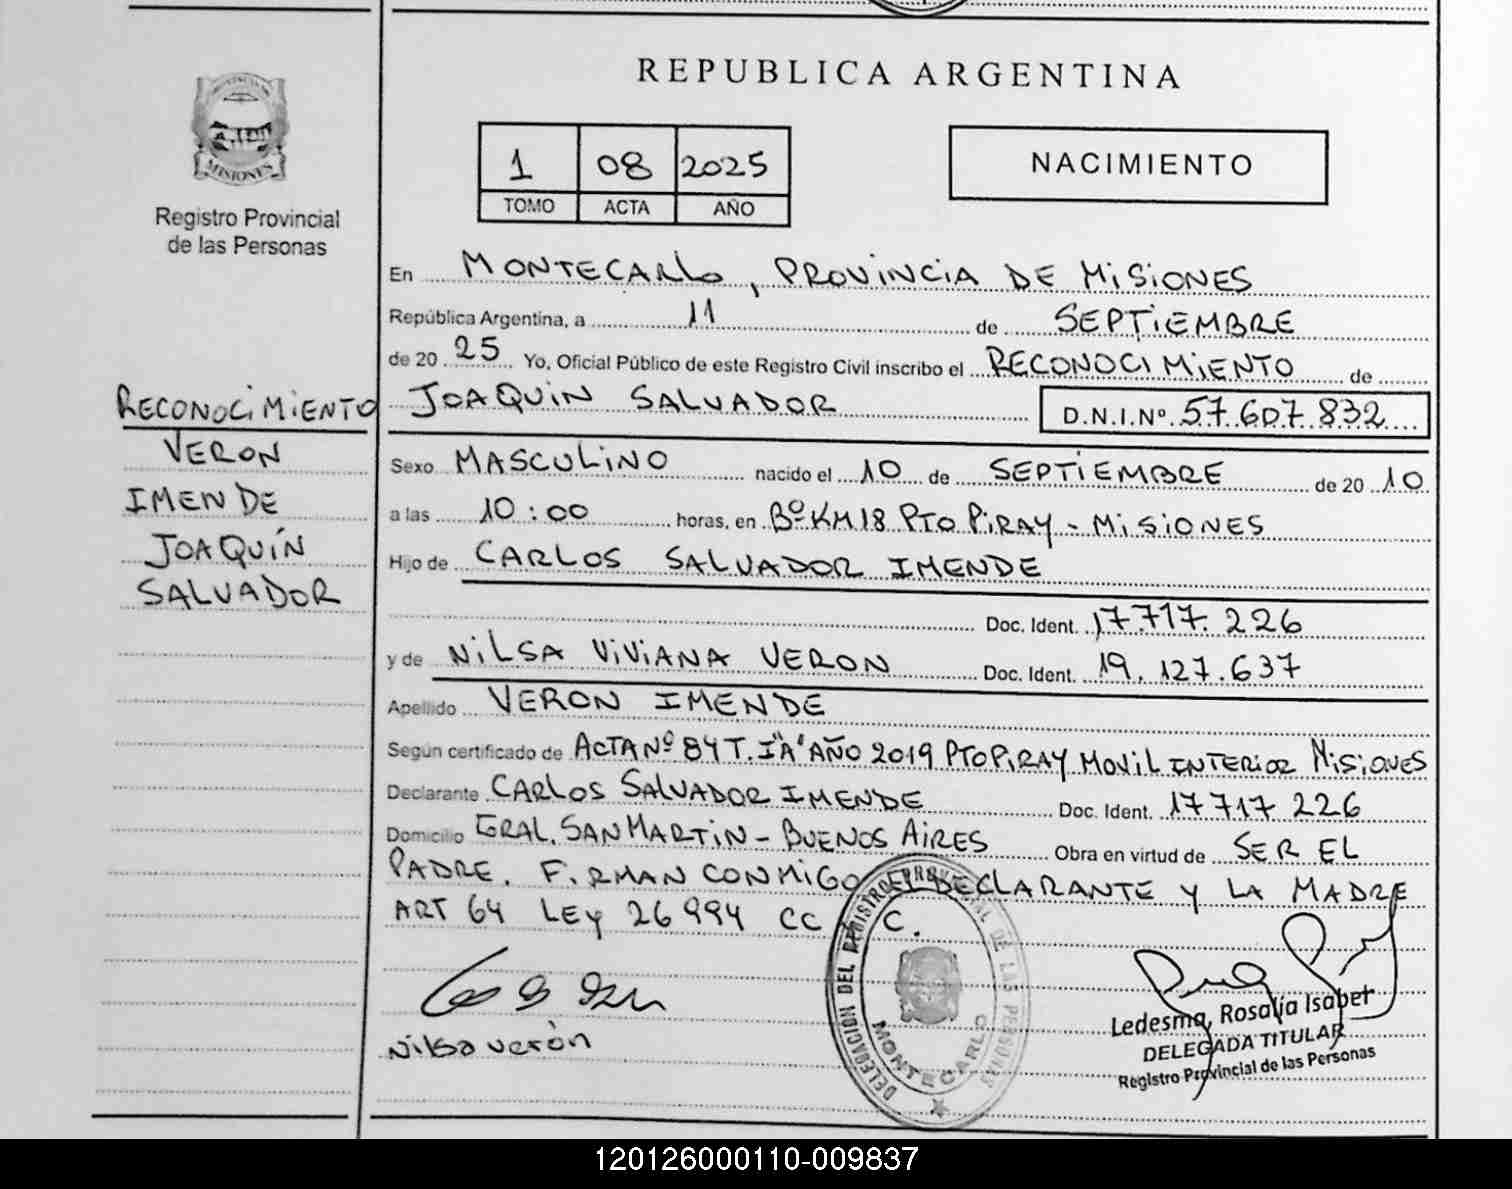 REPUBLICA ARGENTINA
MISIONES
Registro Provincial
de las Personas
1 08 2025
TOMO ACTA AÑO
NACIMIENTO
En MONTECARLO, PROVINCIA DE MISIONES
República Argentina, a 11 de SEPTIEMBRE
de 20 25 Yo, Oficial Público de este Registro Civil inscribo el RECONOCIMIENTO de
JOAQUIN SALVADOR D.N.I.Nº 57.607.832
RECONOCIMIENTO
VERON
IMENDE
JOAQUÍN
SALVADOR
Sexo MASCULINO nacido el 10 de SEPTIEMBRE de 20 10
a las 10:00 horas, en Bº KM18 PTO PIRAY - MISIONES
Hijo de CARLOS SALVADOR IMENDE
Doc. Ident. 17.717.226
y de NILSA VIVIANA VERON Doc. Ident. 19.127.637
Apellido VERON IMENDE
Según certificado de ACTA Nº 84 T. I "A" AÑO 2019 PTO PIRAY MOVIL INTERIOR MISIONES
Declarante CARLOS SALVADOR IMENDE Doc. Ident. 17717226
Domicilio GRAL. SAN MARTIN - BUENOS AIRES Obra en virtud de SER EL
PADRE. FIRMAN CONMIGO EL DECLARANTE Y LA MADRE
ART 64 LEY 26994 CC C.
Nilsa verón
DELEGACIÓN DEL REGISTRO PROVINCIAL DE LAS PERSONAS
MONTECARLO
Ledesma, Rosalía Isabel
DELEGADA TITULAR
Registro Provincial de las Personas
120126000110-009837